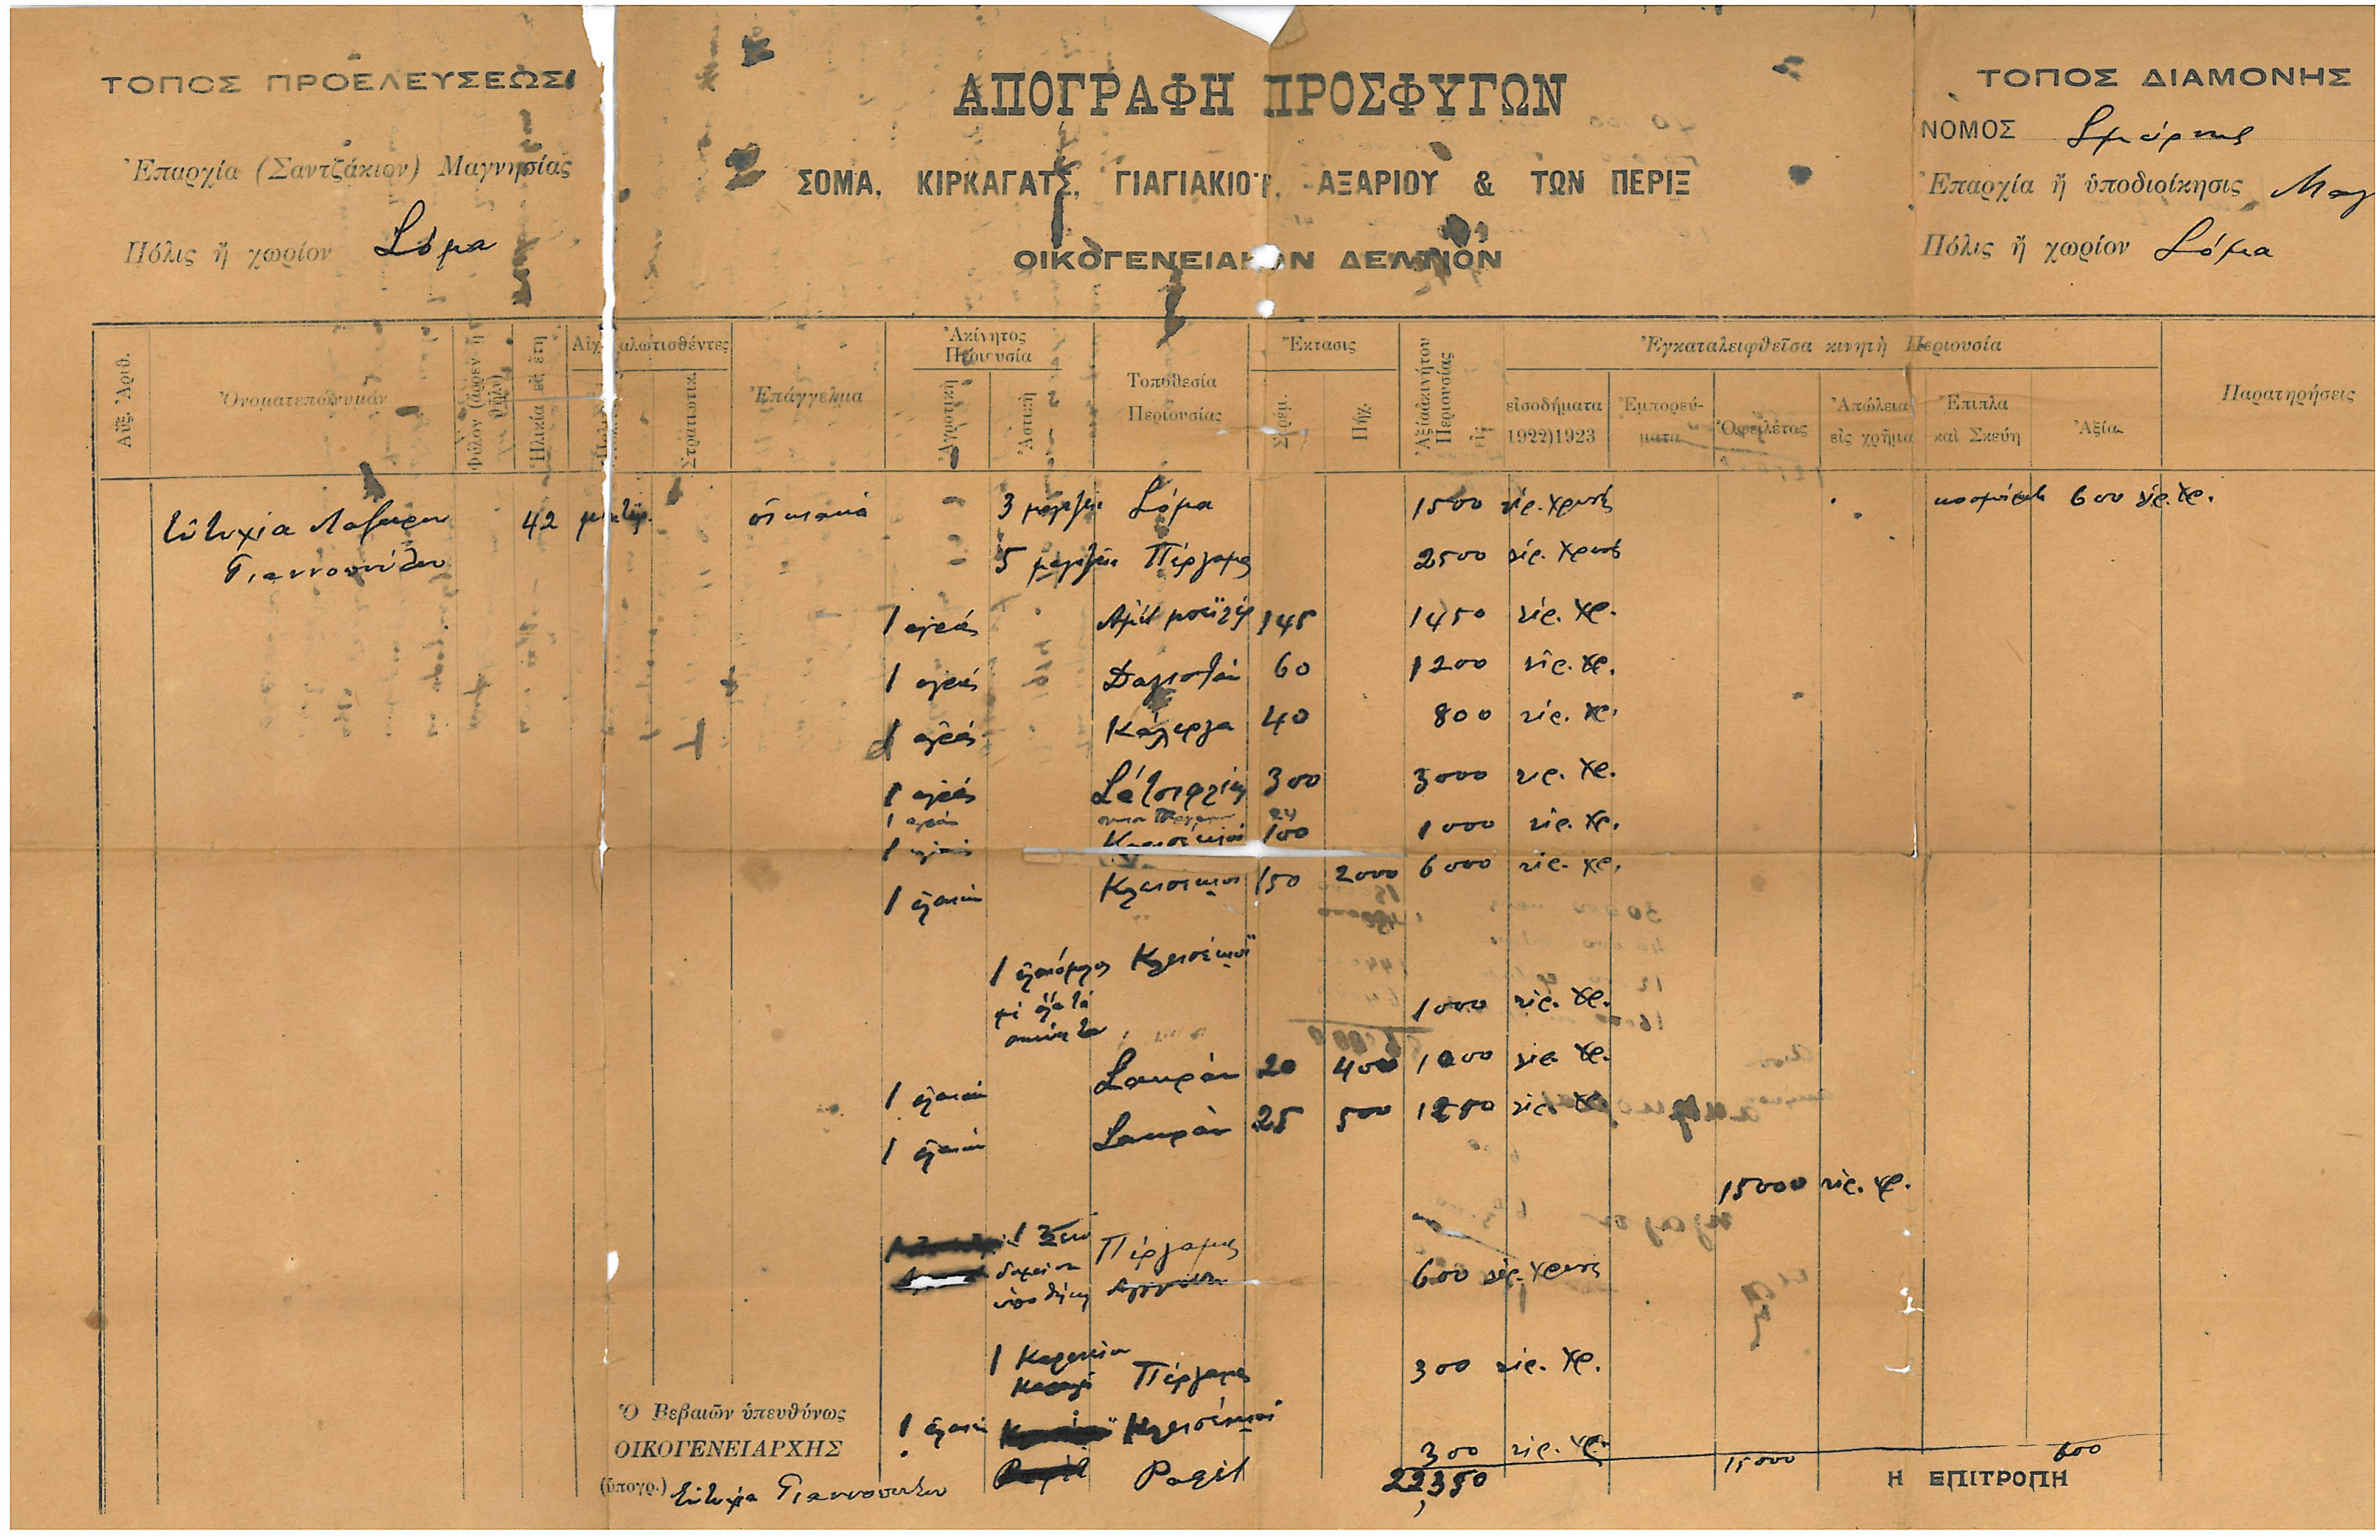 ΤΟΠΟΣ ΠΡΟΕΛΕΥΣΕΩΣ
Ἐπαρχία (Σαντζάκιον) Μαγνησίας
Πόλις ἢ χωρίον Σόμα
ΑΠΟΓΡΑΦΗ ΠΡΟΣΦΥΓΩΝ
ΣΟΜΑ, ΚΙΡΚΑΓΑΤΣ, ΓΙΑΓΙΑΚΙΟΪ, ΑΞΑΡΙΟΥ & ΤΩΝ ΠΕΡΙΞ
ΟΙΚΟΓΕΝΕΙΑΚΟΝ ΔΕΛΤΙΟΝ
ΤΟΠΟΣ ΔΙΑΜΟΝΗΣ
ΝΟΜΟΣ Σμύρνης
Ἐπαρχία ἢ ὑποδιοίκησις Μαγ
Πόλις ἢ χωρίον Σόμα
Αὔξ. Ἀριθ.
Ὀνοματεπώνυμον
Φύλον (ἄρρεν ἢ θῆλυ)
Ἡλικία εἰς ἔτη
Αἰχμαλωτισθέντες
Στρατιωτικ.
Ἐπάγγελμα
Ἀκίνητος Περιουσία
Ἀγροτικὴ
Ἀστικὴ
Τοποθεσία Περιουσίας
Ἔκτασις
Στρέμ.
Πηχ.
Ἀξία ἀκινήτου Περιουσίας εἰς
Ἐγκαταλειφθεῖσα κινητὴ Περιουσία
εἰσοδήματα 1922)1923
Ἐμπορεύματα
Ὀφειλέτας
Ἀπώλεια εἰς χρῆμα
Ἔπιπλα καὶ Σκεύη
Ἀξία
Παρατηρήσεις
Εὐτυχία Λαζάρου 42 οἰκιακά 3 μαγαζιά Σόμα 1500 λίρ. χρυσές 600 λίρ. χρ.
Γιαννοπούλου 5 μαγαζιά Πέργαμος 2500 λίρ. χρυσές
1 αγρός 145 1450 λίρ. χρ.
1 αγρός Δαγιστάν 60 1200 λίρ. χρ.
1 αγρός Κάλεργα 40 800 λίρ. χρ.
1 αγρός 300 3000 λίρ. χρ.
1 αγρός 24
1 αγρός Κλεισέκιοϊ 100 1000 λίρ. χρ.
1 ἐλαιών Κλεισέκιοϊ 150 2000 6000 λίρ. χρ.
1 ἐλαιόμυλος Κλεισέκιοϊ
μὲ ὅλα τὰ
ἀκίνητα 1000 λίρ. χρ.
1 ἐλαιών Σακράν 20 400 1000 λίρ. χρ.
1 ἐλαιών Σακράν 25 500 1250 λίρ. χρ.
15000 λίρ. χρ.
1 Ξενο
δοχείον Πέργαμος
600 λίρ. χρυσές
1 Καφενείον
Πέργαμος 300 λίρ. χρ.
1 ἐλαιών Κλεισέκιοϊ
300 λίρ. χρ.
22,350 15000 600
Ὁ Βεβαιῶν ὑπευθύνως
ΟΙΚΟΓΕΝΕΙΑΡΧΗΣ
(ὑπογρ.) Εὐτυχία Γιαννοπούλου
Η ΕΠΙΤΡΟΠΗ